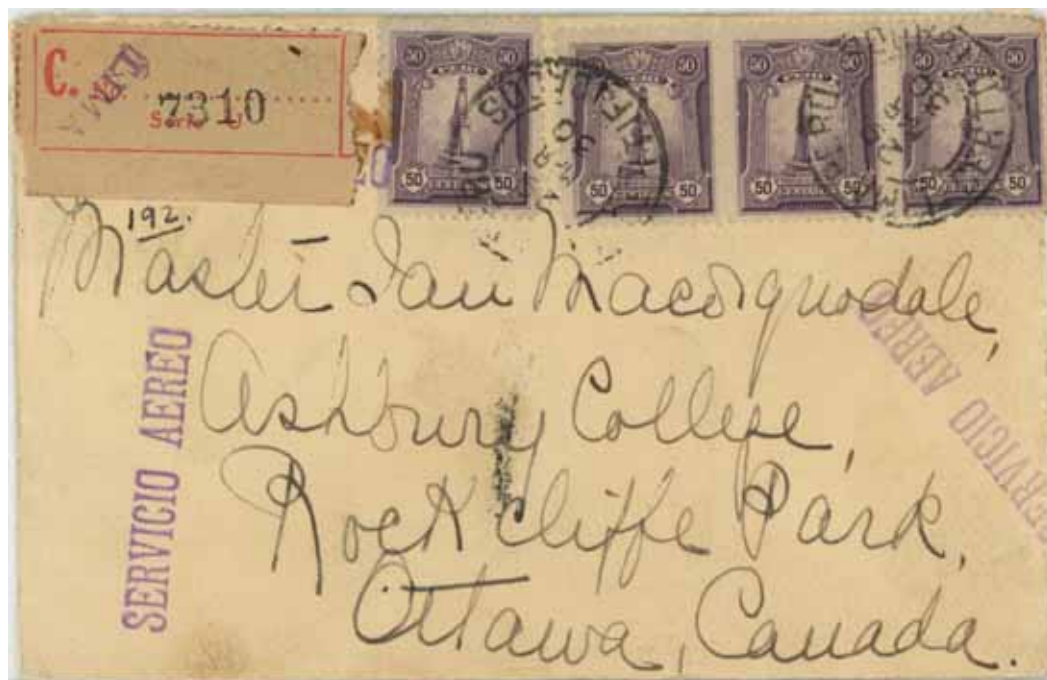 C.
LIMA
7310
Serie U
50 50
50 50
50 50
50 50
50 50
50 50
50 50
50 50
CERTIFICADOS
PERU
192.
Master Ian Macorquodale,
Ashbury College,
Rockcliffe Park,
Ottawa, Canada.
SERVICIO AEREO
SERVICIO AEREO